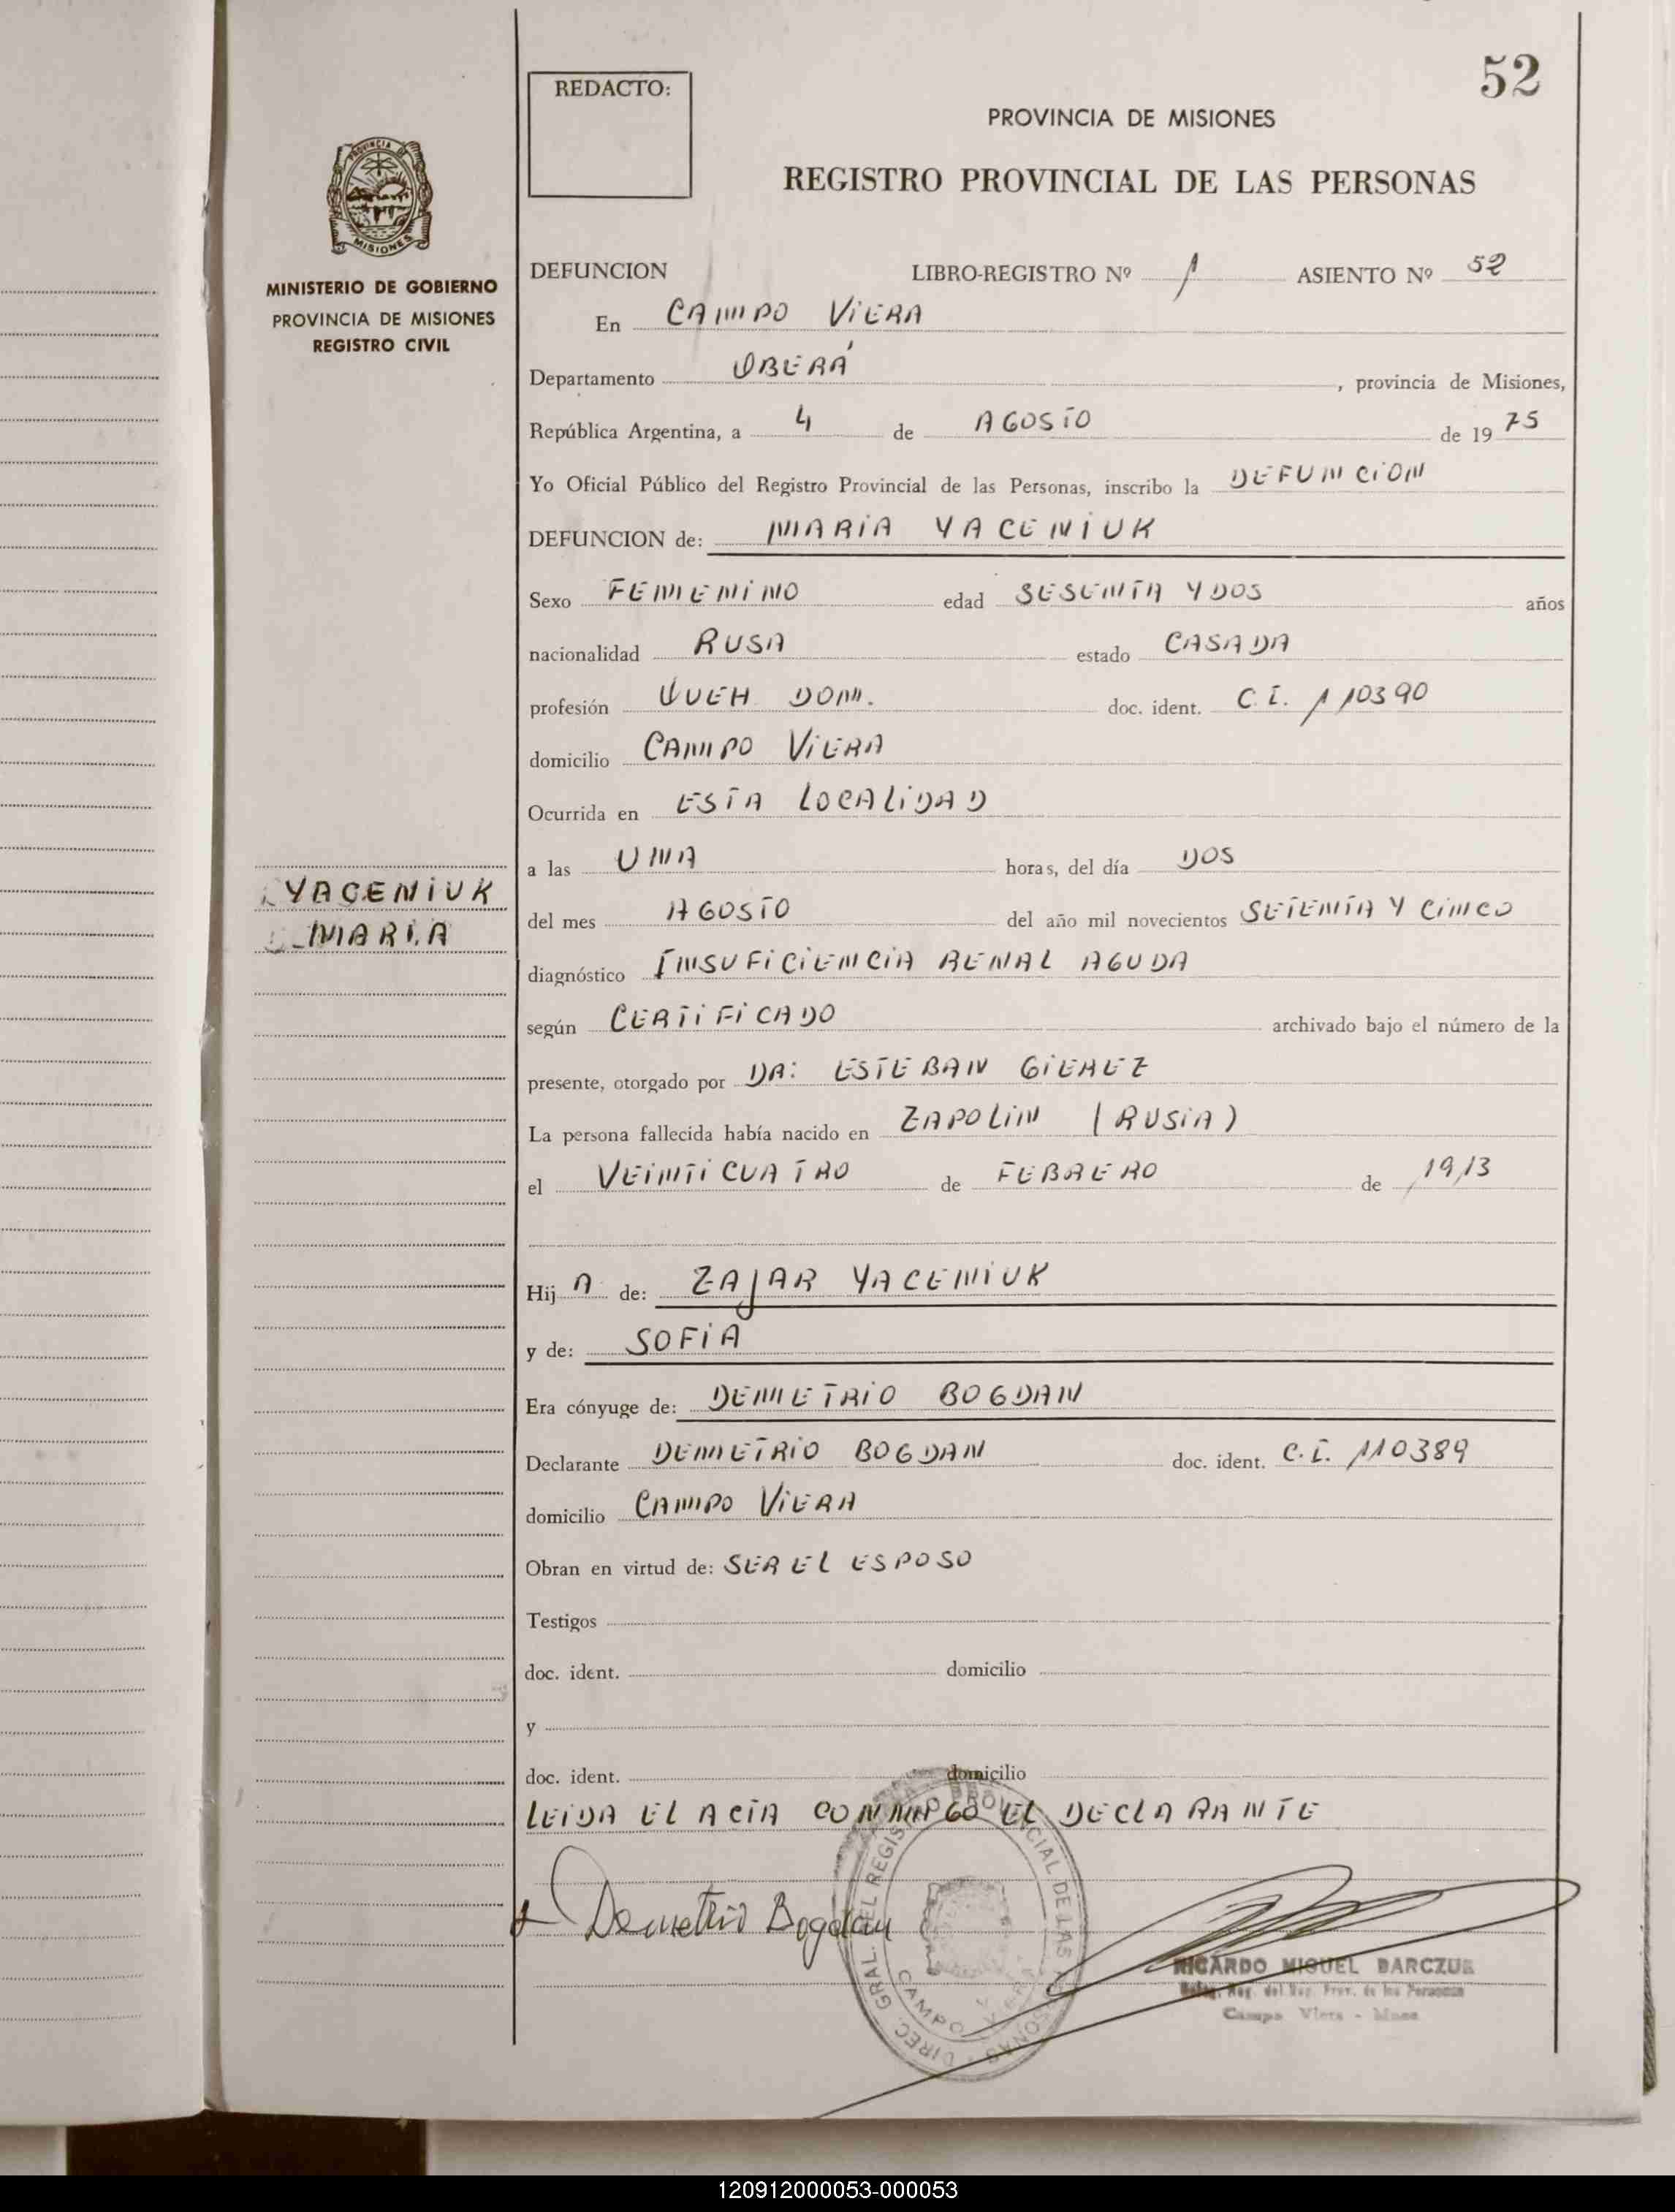 52
REDACTO:
PROVINCIA DE MISIONES
REGISTRO PROVINCIAL DE LAS PERSONAS
PROVINCIA DE
MISIONES
MINISTERIO DE GOBIERNO
PROVINCIA DE MISIONES
REGISTRO CIVIL
DEFUNCION LIBRO-REGISTRO Nº 1 ASIENTO Nº 52
En CAMPO VIERA
Departamento OBERÁ, provincia de Misiones,
República Argentina, a 4 de AGOSTO de 1975
Yo Oficial Público del Registro Provincial de las Personas, inscribo la DEFUNCION
DEFUNCION de: MARIA YACENIUK
Sexo FEMENINO edad SESENTA Y DOS años
nacionalidad RUSA estado CASADA
profesión QUEH. DOM. doc. ident. C.I. 110390
domicilio CAMPO VIERA
Ocurrida en ESTA LOCALIDAD
a las UNA horas, del día DOS
YACENIUK
MARIA
del mes AGOSTO del año mil novecientos SETENTA Y CINCO
diagnóstico INSUFICIENCIA RENAL AGUDA
según CERTIFICADO archivado bajo el número de la
presente, otorgado por DR: ESTEBAN
La persona fallecida había nacido en ZAPOLIN (RUSIA)
el VEINTICUATRO de FEBRERO de 1913
Hij A de: ZAJAR YACENIUK
y de: SOFIA
Era cónyuge de: DEMETRIO BOGDAN
Declarante DEMETRIO BOGDAN doc. ident. C.I. 110389
domicilio CAMPO VIERA
Obran en virtud de: SER EL ESPOSO
Testigos
doc. ident. domicilio
y
doc. ident. domicilio
LEIDA EL ACTA CONMIGO EL DECLARANTE
Demetrio Bogdan
DIREC. GRAL. DEL REGISTRO PROVINCIAL DE LAS PERSONAS
CAMPO VIERA
RICARDO MIGUEL BARCZUK
Reg. del Reg. Prov. de las Personas
Campo Viera - Mnes
120912000053-000053